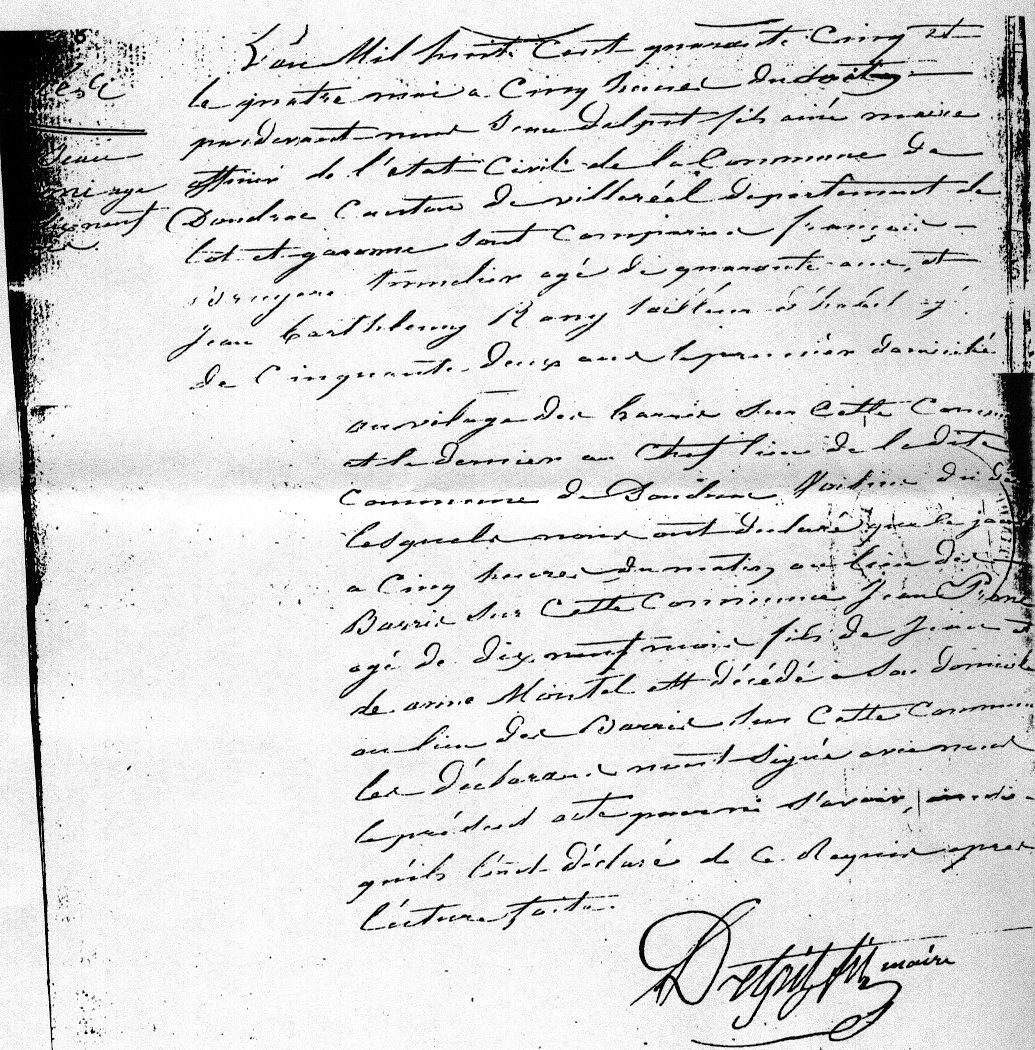 L'an Mil huit Cent quarante Cinq et
le quatre mai a Cinq heures du
pardevant nous Jean Delprit fils ainé maire
officier de l'état Civil de la Commune de
Doudrac Canton de villeréal departement de
lot et garonne sont Comparus françois
agé de quarante ans, et
Jean Barthelemy Rany tailleur d'habit agé
de Cinquante deux ans le premier domicilié
au vilage des barris sur Cette Comm
et le dernier au Chef lieu de la dite
Commune de Doudrac Voisins du
lesquels nous ont declaré que le jou
a Cinq heures du matin au lieu des
Barris sur Cette Commune Jean
agé de dix neuf mois fils de Jean et
de anne Montel est décédé a Son domicile
au lieu des Barris sur Cette Commun
les déclarans n'ont Signé avec nous
le présent acte pour ne Savoir,
qu'ils l'ont déclaré de Ce Requis apres
Lecture faite.
Jean
agé
neuf
Delprit fils maire